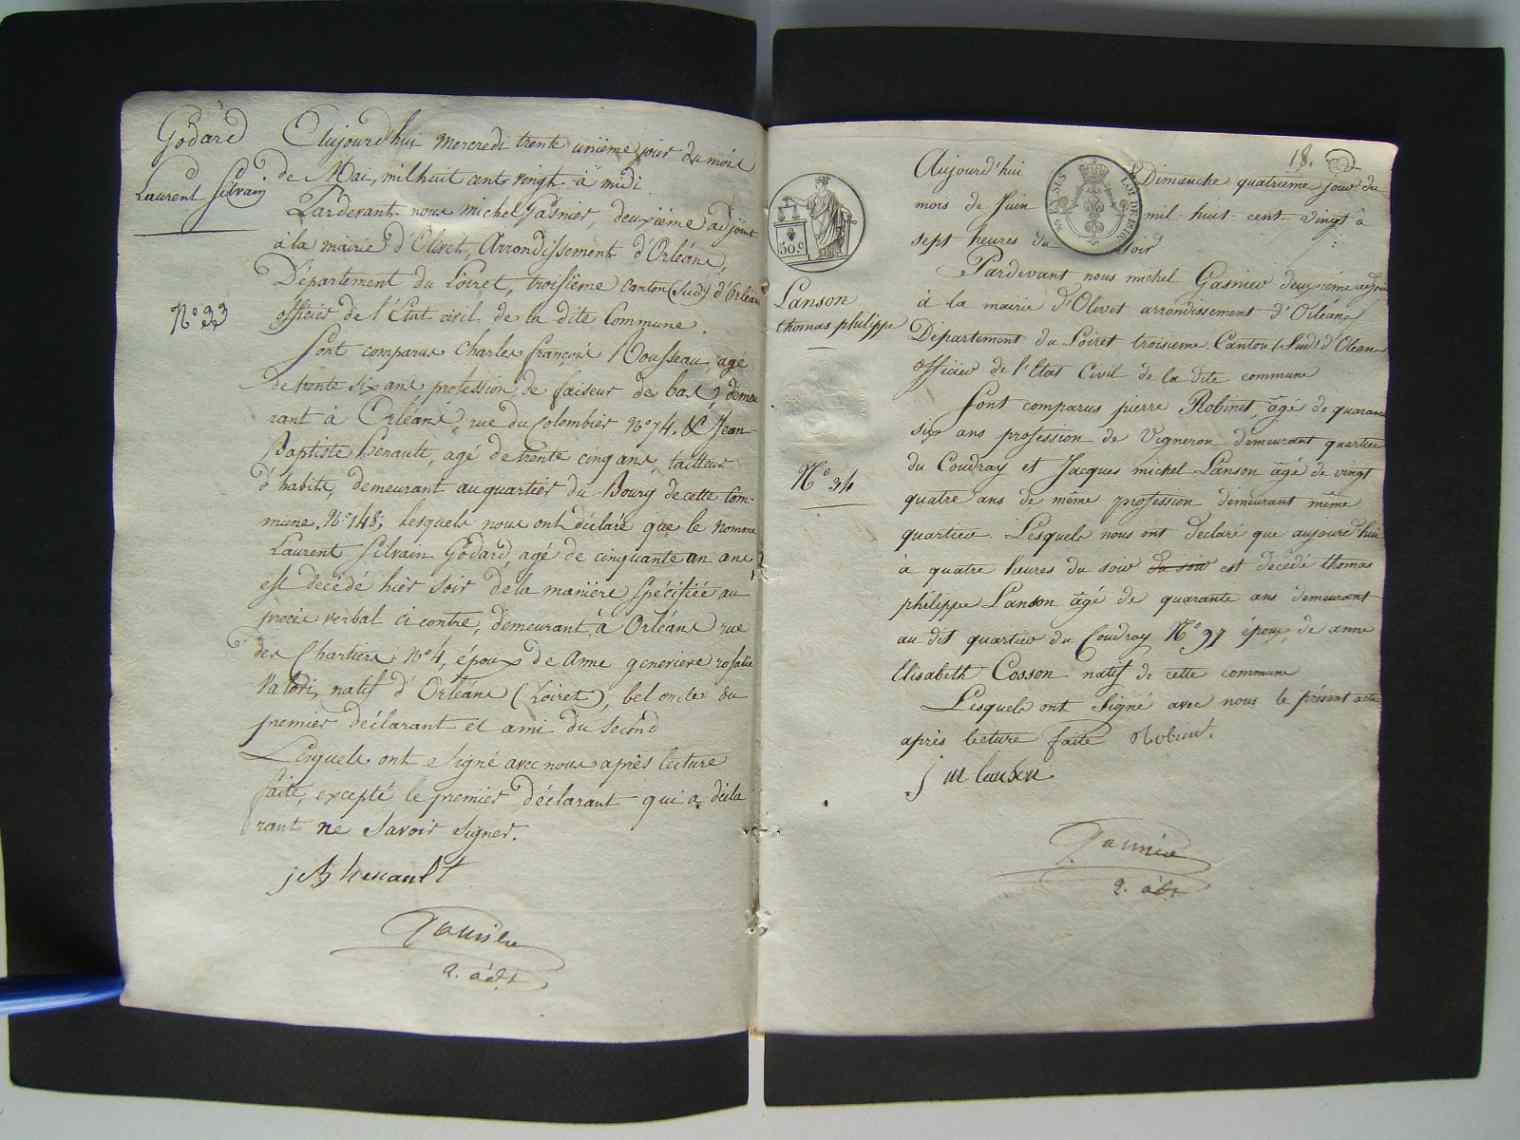 Godard
Laurent Silvain
N° 33
Aujourd'hui mercredi trente unième jour du mois
de Mai, mil huit cent vingt à midi
Pardevant nous michel Gasnier, deuxième adjoint
à la mairie d'Olivet, Arrondissement d'Orléans,
Département du Loiret, troisième Canton (Sud) d'Orléans
officier de l'Etat civil de la dite Commune.
Sont comparus Charles françois Rousseau, agé
de trente six ans profession de faiseur de bas, demeu
rant à Orléans, rue du Colombier N° 74. & Jean
Baptiste Henault, agé de trente cinq ans, tailleur
d'habits, demeurant au quartier du Bourg de cette Com-
mune, N° 148, lesquels nous ont déclaré que le nommé
Laurent Silvain Godard, agé de cinquante un ans
est decédé hier soir de la manière spécifiée au
procès verbal ci contre, demeurant à Orléans rue
des Chartiers N° 4, époux de Anne genevieve rosalie
natif d'Orléans (Loiret), bel oncle du
premier déclarant et ami du second
Lesquels ont signé avec nous après lecture
faite, excepté le premier déclarant qui a décla
rant ne savoir signer.
2. adjt
18.
50 c
Lanson
thomas philippe
N° 34
Aujourd'hui Dimanche quatrième jour du
mois de Juin mil huit cent vingt à
sept heures du soir
Pardevant nous michel Gasnier deuxième adjoint
à la mairie d'Olivet arrondissement d'Orléans
Département du Loiret troisieme Canton (Sud) d'Orleans
officier de l'Etat Civil de la dite commune
Sont comparus pierre Robinet, âgé de quarante
six ans profession de Vigneron demeurant quartier
du Coudray et Jacques michel Lanson âgé de vingt
quatre ans de même profession demeurant même
quartier Lesquels nous ont declaré que aujourd'hui
à quatre heures du soir du soir est décédé thomas
philippe Lanson âgé de quarante ans demeurant
au dit quartier du Coudray N° 97 époux de anne
Elisabeth Cosson natif de cette commune
Lesquels ont signé avec nous le présent acte
après lecture faite Robinet.
j m lanson
2. adjt